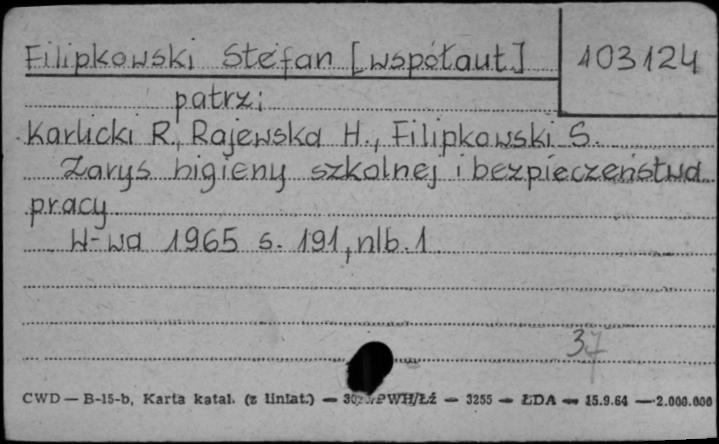 Filipkowski Stefan [współaut.] 103124
patrz:
Karlicki R., Rajewska H., Filipkowski S.
Zarys higieny szkolnej i bezpieczeństwa
pracy
W-wa 1965 s. 191, nlb. 1
37
CWD — B-15-b, Karta katal. (z liniat.) — PWH/Łź — 3255 — ŁDA — 15.9.64 — 2.000.000